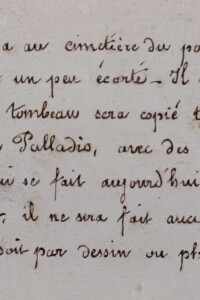 a au cimetière du
un peu écarté - Il
tombeau sera copié
Palladio, avec des
se fait aujourd'hui
il ne sera fait
soit par dessin ou